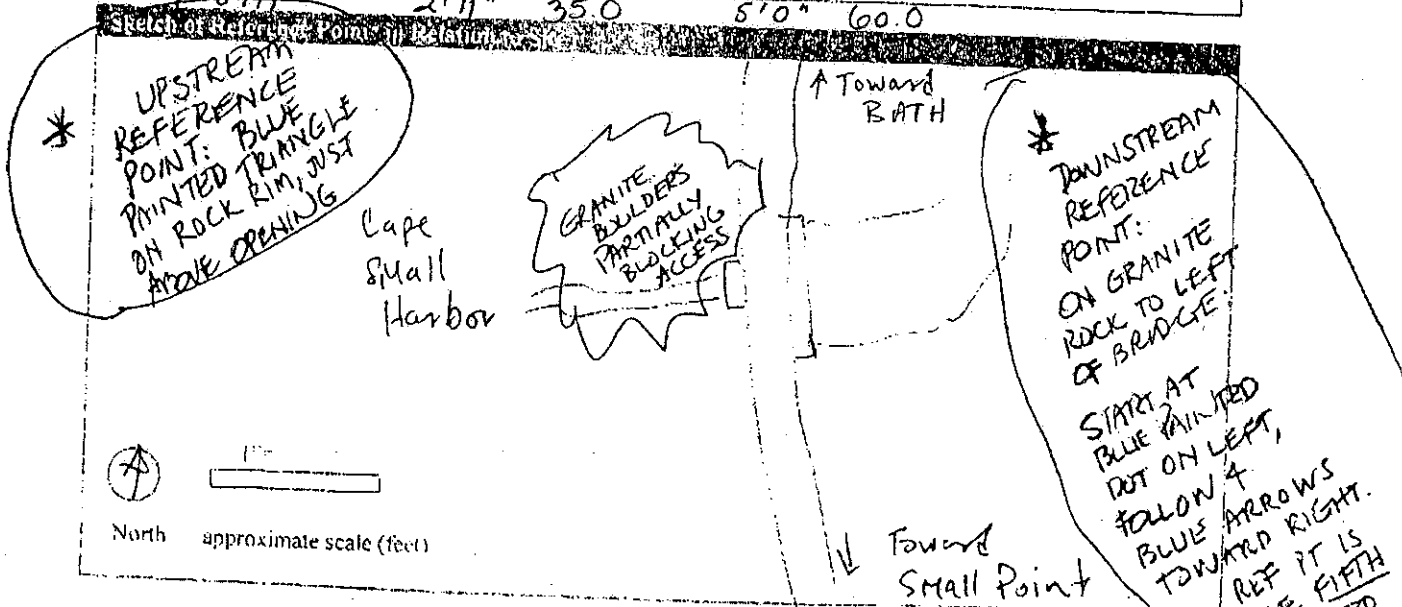 2'11" 35.0 5'0" 60.0
Sketch of Reference Point in Relation to
* UPSTREAM
REFERENCE
POINT: BLUE
PAINTED TRIANGLE
ON ROCK RIM, JUST
ABOVE OPENING
Cape
Small
Harbor
GRANITE
BOULDERS
PARTIALLY
BLOCKING
ACCESS
↑ Toward
BATH
* DOWNSTREAM
REFERENCE
POINT:
ON GRANITE
ROCK TO LEFT
OF BRIDGE.
START AT
BLUE PAINTED
DOT ON LEFT,
FOLLOW 4
BLUE ARROWS
TOWARD RIGHT.
REF PT IS
FIFTH
North approximate scale (feet)
↓ Toward
Small Point